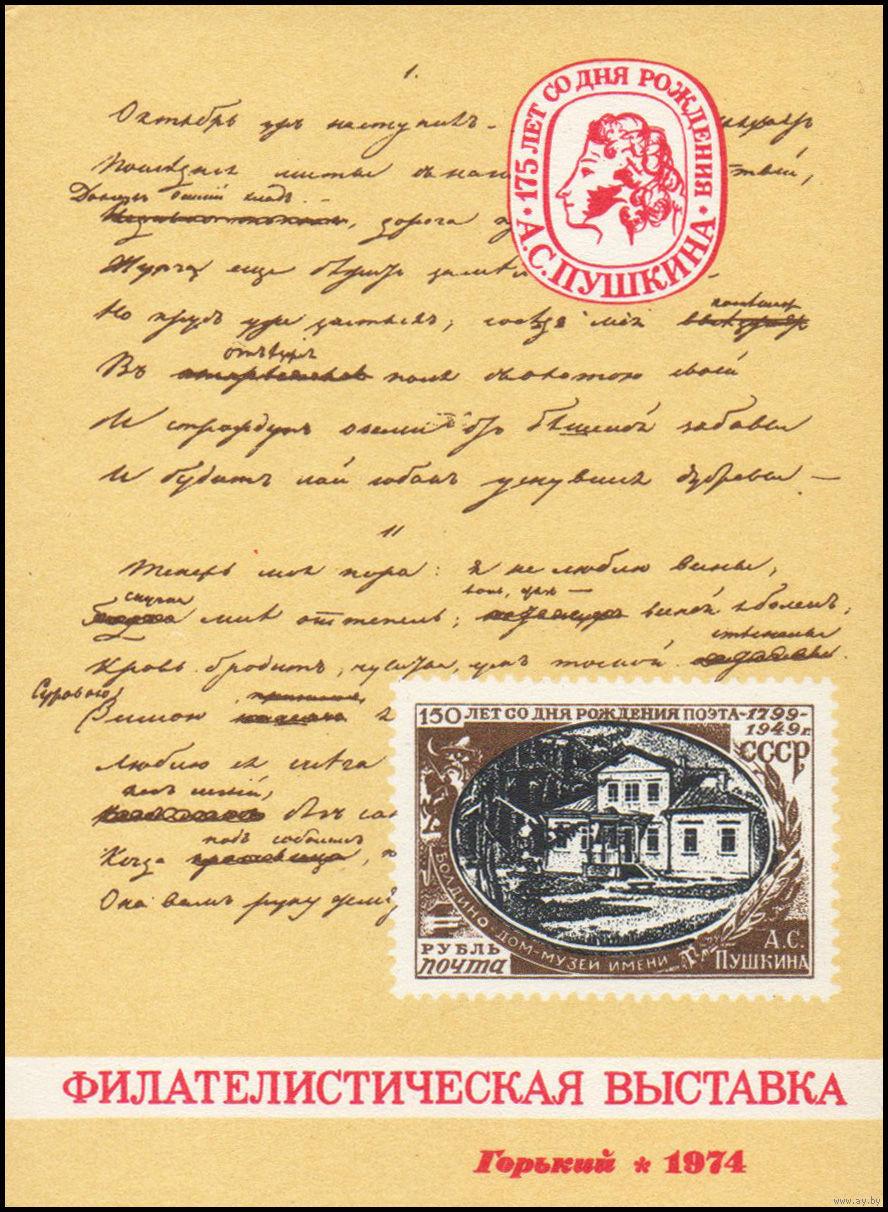 I.
Октябрь ужъ наступилъ —
Послѣдніе листы съ наг
Дохнулъ осенній хладъ —
дорога
Журча еще бѣжитъ за мель
поспѣшаетъ
Но прудъ уже застылъ; сосѣдъ мой
отъѣзжи
Въ поля съ охотою своей
И страждутъ озими отъ бѣшеной забавы
И будитъ лай собакъ уснувшія дубравы —
II
Теперь моя пора: я не люблю весны;
скучна вонь, грязь —
мнѣ оттепель; весной я боленъ;
стѣснены
Кровь бродитъ; чувства, умъ тоскою
Суровою
Зимой
Люблю ея снѣга
Когда подъ соболемъ
Она вамъ руку
175 ЛЕТ СО ДНЯ РОЖДЕНИЯ
А.С.ПУШКИНА
150 ЛЕТ СО ДНЯ РОЖДЕНИЯ ПОЭТА-1799-
1949г.
СССР
БОЛДИНО-ДОМ-МУЗЕЙ ИМЕНИ
А.С.
ПУШКИНА
1
РУБЛЬ
почта
ФИЛАТЕЛИСТИЧЕСКАЯ ВЫСТАВКА
Горький * 1974
www.ay.by